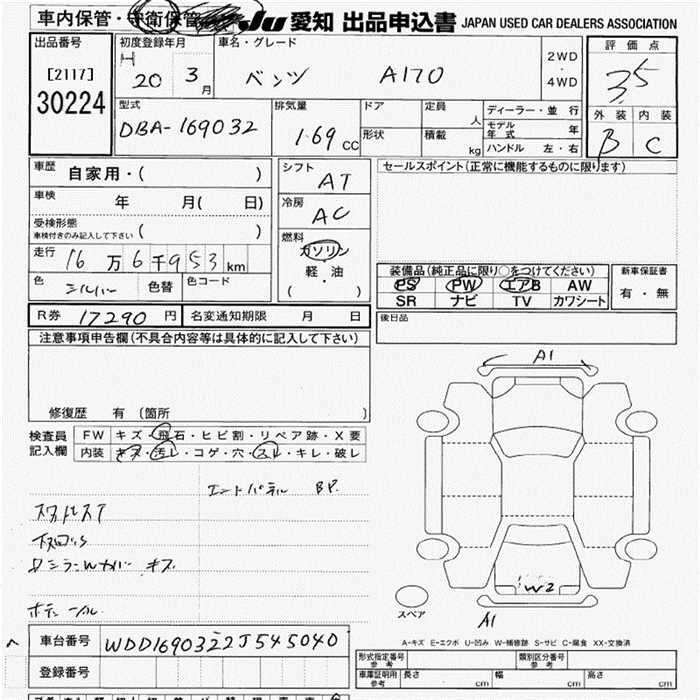 車内保管・守衛保管 JU 愛知 出品申込書 JAPAN USED CAR DEALERS ASSOCIATION
出品番号 初度登録年月 車名・グレード 2WD・4WD 評価点
[2117] H 20 3月 ベンツ A170 3.5
30224
型式 排気量 ドア 定員 人 ディーラー・並行 外装 内装
DBA-169032 1.69 CC 形状 積載 kg モデル年式 年 B C
ハンドル 左・右
車歴 自家用・( ) シフト AT セールスポイント(正常に機能するものに限ります)
車検 年 月( 日) 冷房 AC
受検形態 車検付きのみ記入して下さい ( )
燃料 ガソリン 軽・油 ( )
走行 16万6千953km
色 シルバー 色替 色コード
装備品(純正品に限り○をつけてください) 新車保証書
PS PW エアB AW 有・無
SR ナビ TV カワシート
R券 17290円 名変通知期限 月 日 後日品
注意事項申告欄(不具合内容等は具体的に記入して下さい)
修復歴 有(箇所 )
検査員記入欄 FW キズ・飛石・ヒビ割・リペア跡・X要
内装 キズ・汚レ・コゲ・穴・スレ・キレ・破レ
エンドパネル BP.
下回リS
ドミラーWカバー キズ
A1
W2
A1
スペア
A-キズ E-エクボ U-凹み W-補修跡 S-サビ C-腐食 XX-交換済
車台番号 WDD1690322J545040
登録番号
形式指定番号 参考 類別区分番号 参考
車庫証明用 参考 長さ cm 幅 cm 高さ cm